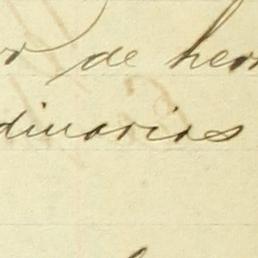 de her
dinarios